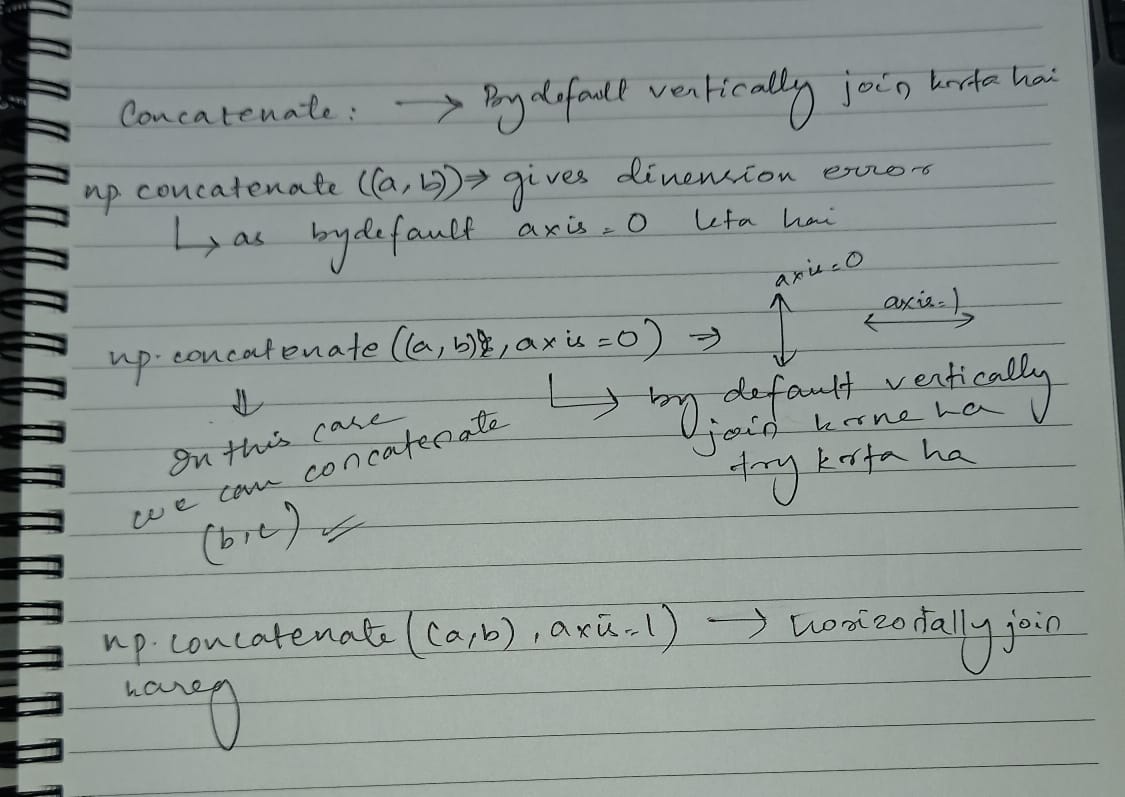 Concatenate: → By default vertically join krta hai
np concatenate ((a,b)) ⇒ gives dinension error
↳ as bydefault axis = 0 leta hai
axis=0
axis=1
np.concatenate ((a,b), axis=0) →
↳ by default vertically
join krne ka
try krta ha
⇓
In this case
we can concatenate
(b,c)
np.concatenate ((a,b), axis=1) → horizontally join
kareg